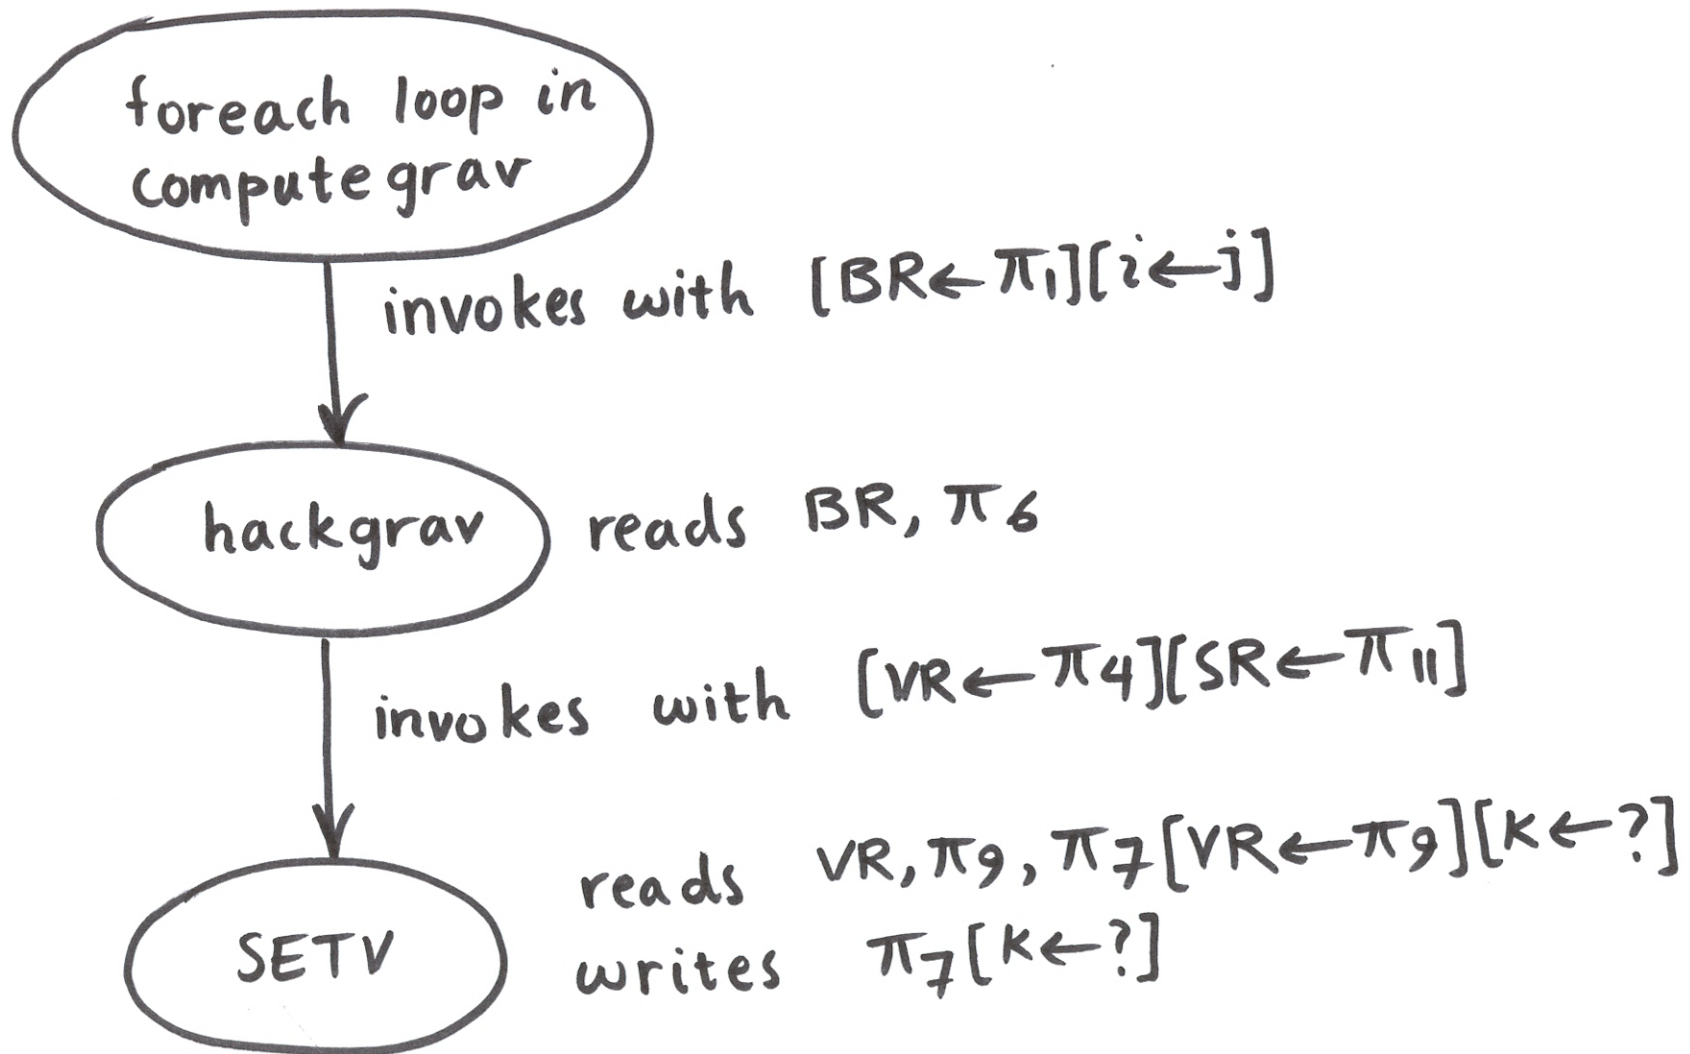 foreach loop in
computegrav
invokes with [BR←π₁][i←j]
hackgrav reads BR, π₆
invokes with [VR←π₄][SR←π₁₁]
reads VR, π₉, π₇[VR←π₉][K←?]
SETV writes π₇[K←?]